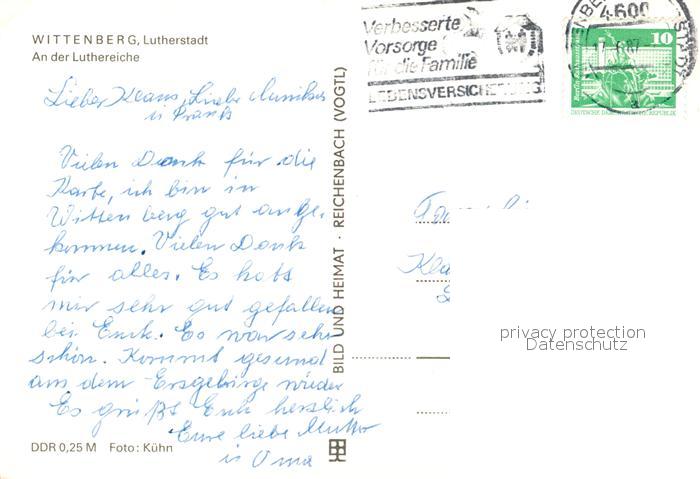 WITTENBERG, Lutherstadt
An der Luthereiche
Lieber Klaus, Liebe Monika
u Frank
Vielen Dank für die
Karte, ich bin in
Wittenberg gut ange-
kommen. Vielen Dank
für alles. Es hats
mir sehr gut gefallen
bei Euch. Es war sehr
schön. Kommt gesund
aus dem Erzgebirge wieder
Es grüßt Euch herzlich
Eure liebe Mutter
u Oma
DDR 0,25 M Foto: Kühn
BILD UND HEIMAT · REICHENBACH (VOGTL)
Verbesserte
Vorsorge
für die Familie
LEBENSVERSICHERUNG
4600
10
DEUTSCHE DEMOKRATISCHE REPUBLIK
privacy protection
Datenschutz